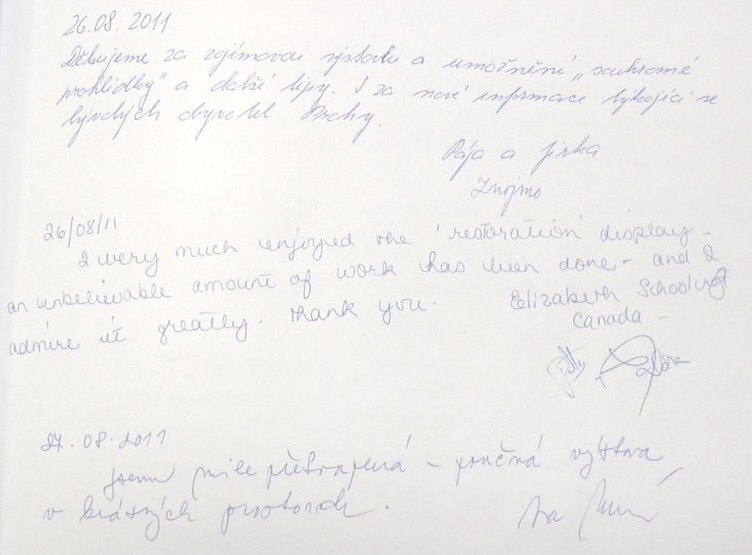 26.08. 2011
Děkujeme za zajímavou výstavu a umožnění „soukromé
prohlídky" a další tipy. I za nové informace týkající se
bývalých obyvatel Prahy.
Pája a Jirka
Znojmo
26/08/11
I very much enjoyed the 'restoration' display -
an unbelievable amount of work has been done - and I
admire it greatly. Thank you.
Elizabeth
Canada -
27.08.2011
Jsem mile překvapená - poučná výstava
v krásných prostorách.